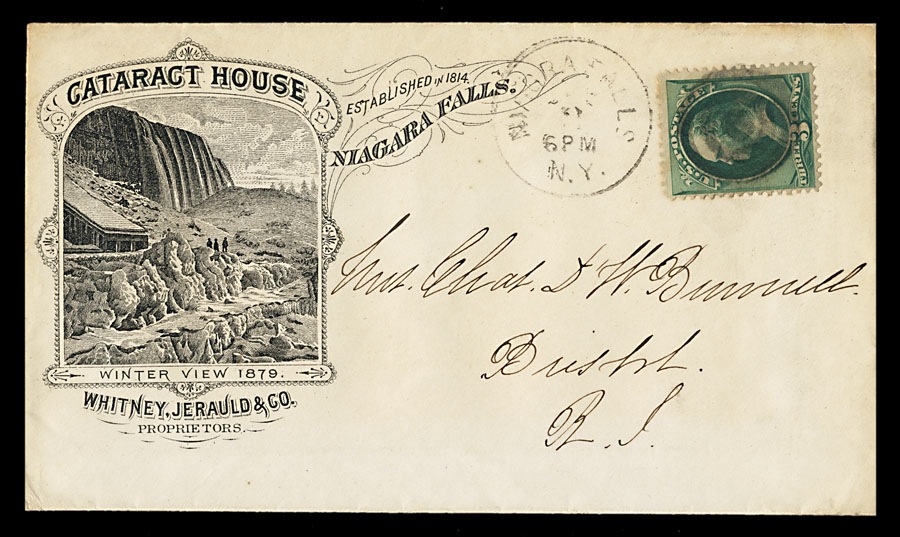 CATARACT HOUSE
ESTABLISHED IN 1814.
NIAGARA FALLS.
WINTER VIEW 1879.
WHITNEY, JERAULD & CO.
PROPRIETORS.
NIAGARA FALLS
6 PM
N.Y.
U.S. POSTAGE
3
Chas. W. Bunnell.
Bristol.
R. I.